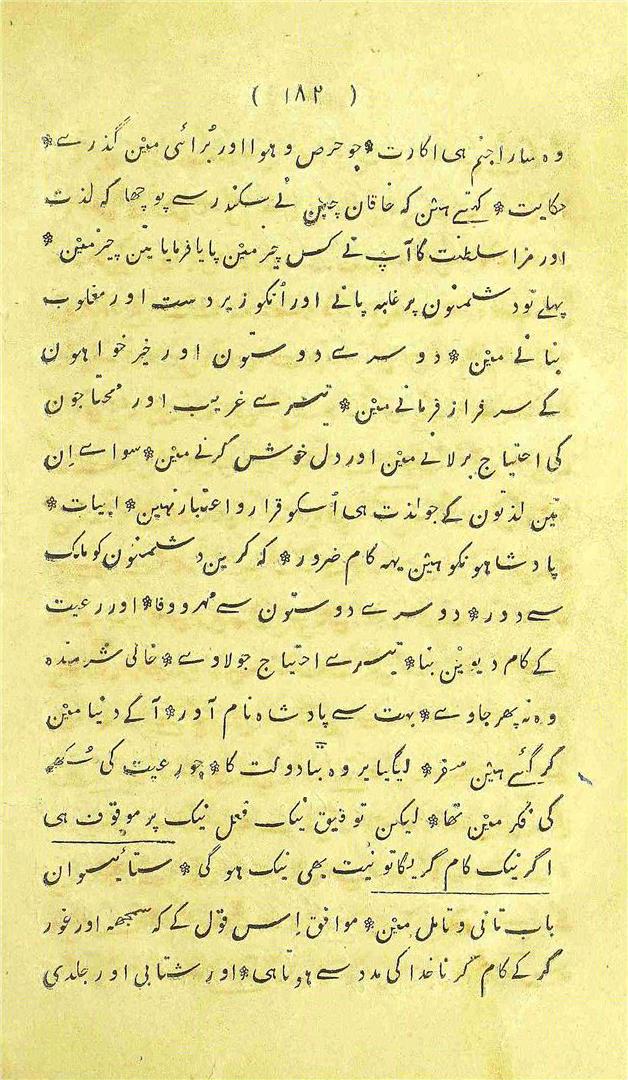 ( ۱۸۲ )
وہ سارا جنم ہی اکارت * جو حرص و ہوا اور بُرائی مین گذرے *
حکایت * کہتے ہین کہ خاقان چین نے سکندر سے پوچھا کہ لذت
اور مزا سلطنت کا آپ نے کس چیز مین پایا فرمایا تین چیز مین *
پہلے تو دشمنون پر غلبہ پانے اور اُنکو زیردست اور مغلوب
بنانے مین * دوسرے دوستون اور خیر خواہون
کے سرفراز فرمانے مین * تیسرے غریب اور محتاجون
کی احتیاج برلانے مین اور دل خوش کرنے مین * سواے اِن
تین لذتون کے جو لذت ہی اُسکو قرار و اعتبار نہین * ابیات *
پادشاہونکو ہین یہہ کام ضرور * کہ کرین دشمنون کو ملک
سے دور * دوسرے دوستون سے مہر و وفا * اور رعیت
کے کام دیوین بنا * تیسرے احتیاج جو لاوے * خالی شرمندہ
وہ نہ پھر جاوے * بہت سے پادشاہ نام آور * آگے دنیا مین
کر گئے ہین سفر * لیگیا پر وہ بنا دولت کا * جو رعیت کی سُکھہ
کی فکر مین تھا * لیکن توفیق نیک فعل نیک پر موقوف ہی
اگر نیک کام کریگا تو نیّت بھی نیک ہو گی * ستائیسوان
باب تانی و تامل مین * موافق اِس قول کے کہ سمجھہ اور غور
کر کے کام کرنا خدا کی مدد سے ہوتا ہی * اور شتابی اور جلدی